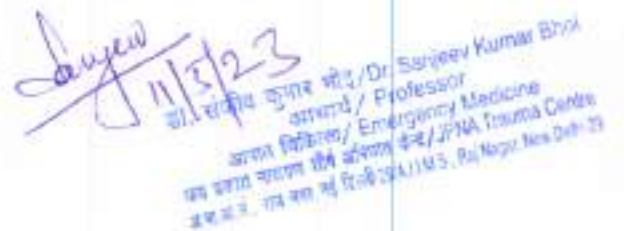 Sanjeev
11/5/23
डा. संजीव कुमार भोइ/Dr. Sanjeev Kumar Bhoi
आचार्य / Professor
आपात चिकित्सा/ Emergency Medicine
जय प्रकाश नारायण शीर्ष अभिघात केन्द्र/JPNA Trauma Centre
नई दिल्ली-29/A.I.I.M.S., Raj Nagar, New Delhi-29